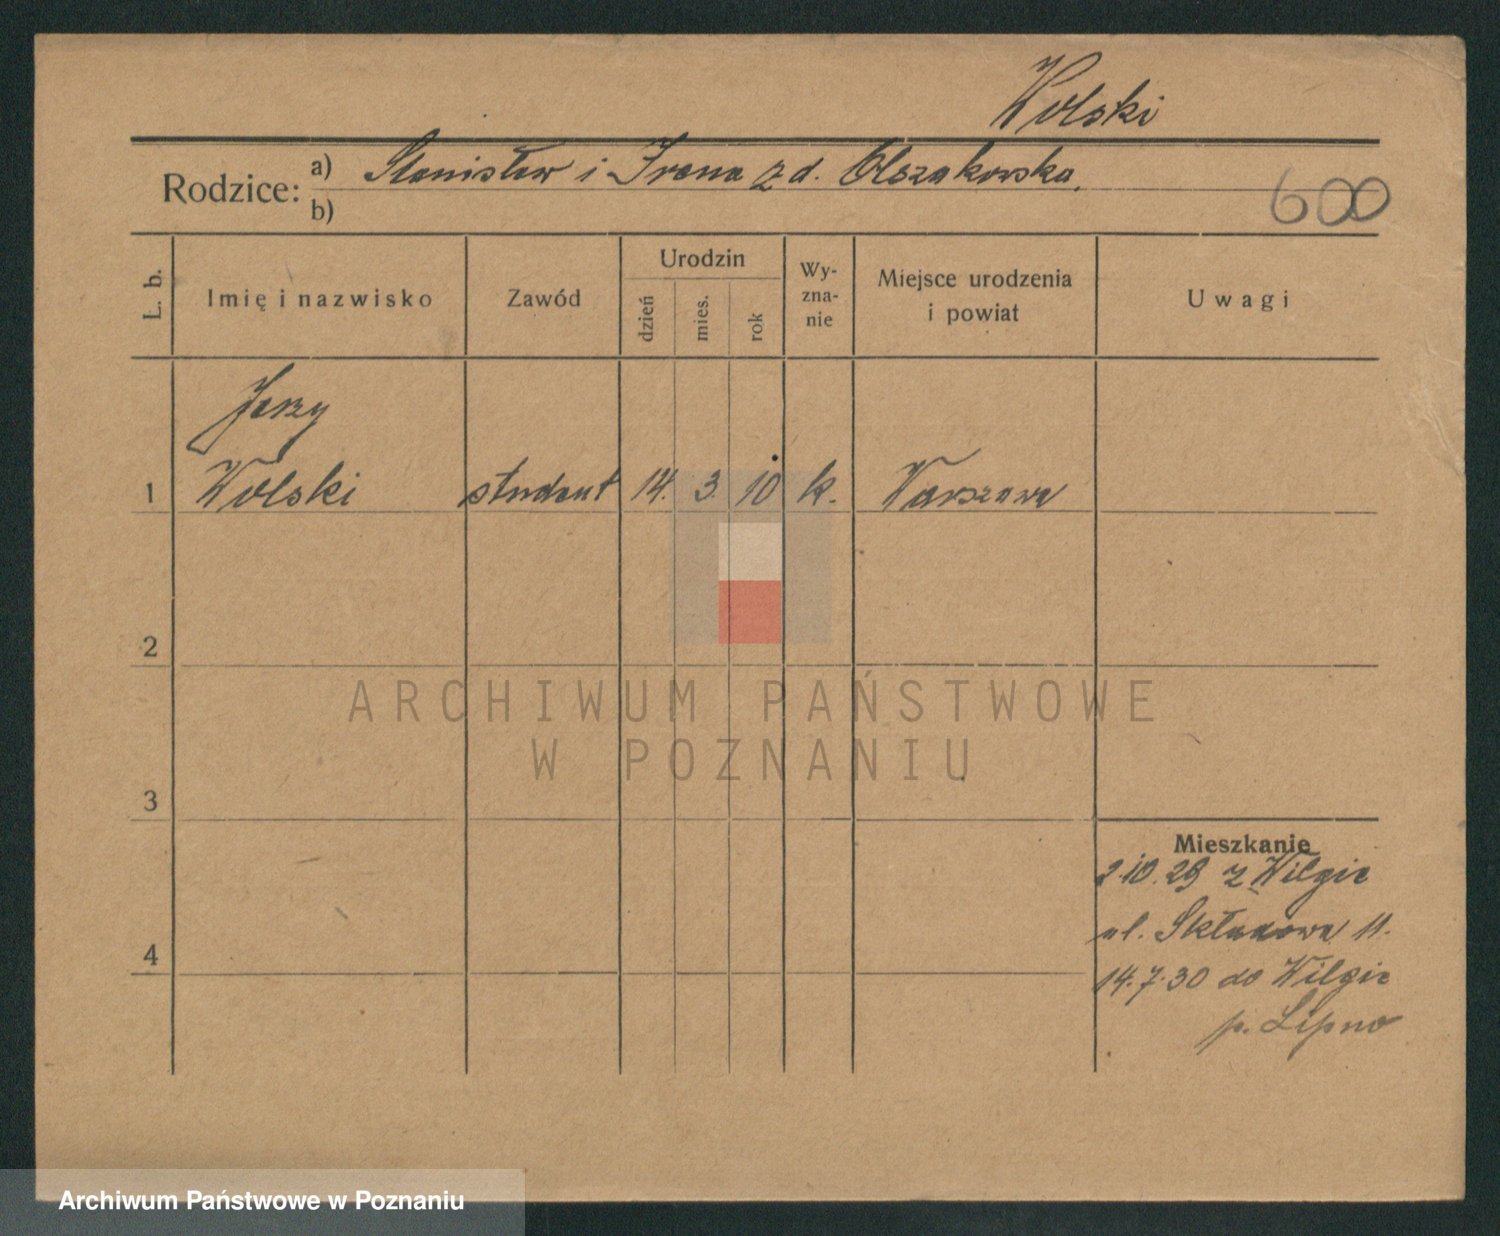 Wolski
Rodzice: a) Stanisław i Irena z d. Olszakowska.
b)
600
L. b.
Imię i nazwisko
Zawód
Urodzin
dzień
mies.
rok
Wy-
zna-
nie
Miejsce urodzenia
i powiat
Uwagi
Jerzy
1 Wolski student 14. 3. 10 k. Warszawa
2
ARCHIWUM PAŃSTWOWE
W POZNANIU
3
Mieszkanie
2.10.29 z Wilgie
ul. Składowa 11.
4
14.7.30 do Wilgie
p. Lipno
Archiwum Państwowe w Poznaniu